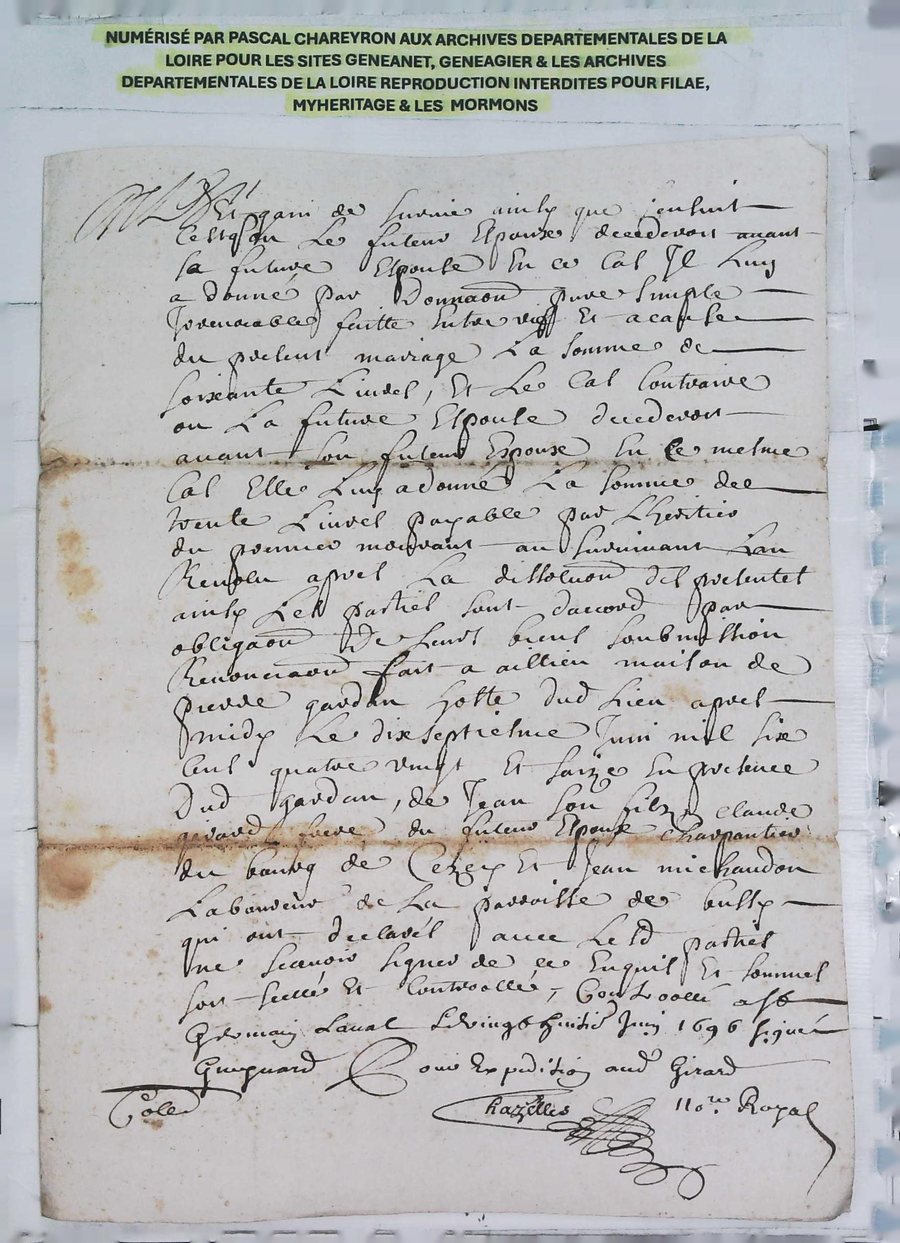 NUMÉRISÉ PAR PASCAL CHAREYRON AUX ARCHIVES DEPARTEMENTALES DE LA
LOIRE POUR LES SITES GENEANET, GENEAGIER & LES ARCHIVES
DEPARTEMENTALES DE LA LOIRE REPRODUCTION INTERDITES POUR FILAE,
MYHERITAGE & LES MORMONS
Et gain de survie ainsy que sensuit
Cest que sy Le futeur Espoux decederoit avant
sa future Espouse En ce Cas Il Luy
a donné par Donnaon pure Simple
Irrevocable faitte Entre vifs Et a cause
du present mariage La Somme de
Soixante Livres, Et Le Cas Contraire
ou La future Espouse decederoit
avant Son futeur Espoux En ce mesme
Cas Elle Luy a donné La Somme de
trente Livres payable par Lheritier
du premier mourant au Survivant Lan
Revolu apres La dissoluon des presentes
ainsy Les parties sont daccord par
obligaon De Leurs biens Soubmission
Renonciaon fait a aillieu maison de
pierre gardan hoste dud Lieu apres
midy Le dixseptiesme Juin mil six
Cens quatre vingt Et saize En presence
Dud gardan, de Jean Son filz, claude
girard frere du futeur Espoux Charpantier
du bourg de Cezey Et Jean michaudon
Laboureur de La parroisse de bussy
qui ont declarés avec Lesd parties
ne Scavoir Signer de ce Enquis Et Sommes
Soit Scellé Et Controollé, Controollé a St
Germain Laval Le vingt huitie Juin 1696 Signé
Guignard Pour Expedition aud Girard
Chazelles nore Royal